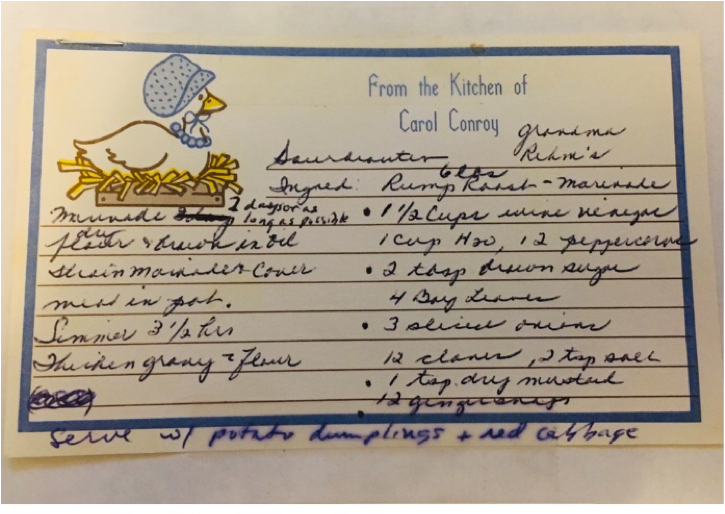 From the Kitchen of
Carol Conroy
Grandma
Rehm's
Sauerbrauten
6 lbs
Ingred: Rump Roast - Marinade
Marinade 2 days or as
long as possible
dry
flour & brown in oil
Strain Marinade & Cover
meat in pot.
Simmer 3 1/2 hrs
Thicken gravy c flour
• 1 1/2 Cups wine vinegar
1 cup H2O, 12 peppercorns
• 2 tbsp brown sugar
4 Bay Leaves
• 3 sliced onions
12 cloves, 2 tsp salt
• 1 tsp. dry mustard
• 12 gingersnaps
Serve w/ potato dumplings + red cabbage